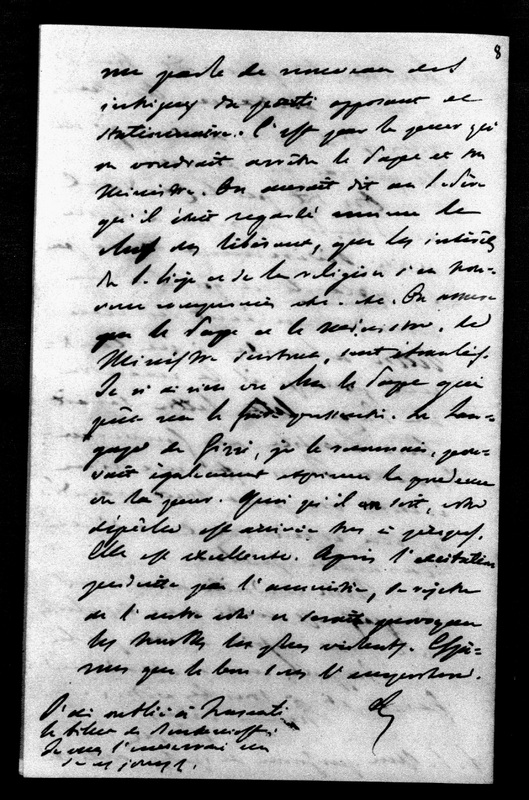 8
me parle de nouveau des
intrigues du parti opposant et
stationnaire. C'est par la peur qu'
on voudrait arrêter le Pape et son
Ministre. On aurait dit au St Père
qu'il était regardé comme le
chef des libéraux, que les intérêts
du St Siège et de la religion s'en trou-
vent compromis etc. etc. On assure
que le Pape et le ministre, le
Ministre surtout, sont ébranlés.
Je n'ai rien vu chez le Pape qui
pût me le faire pressentir. Le lan-
gage de Gizzi, je le reconnais, pou-
vait également exprimer la prudence
ou la peur. Quoi qu'il en soit, votre
dépêche est arrivée très à propos.
Elle est excellente. Après l'excitation
produite par l'amnistie, se rejeter
de l'autre côté ce serait provoquer
les troubles les plus violents. Espé-
rons que le bon sens l'emportera.
J'ai oublié à Frascati
le billet de
Je vous l'enverrai un
de ces jours.